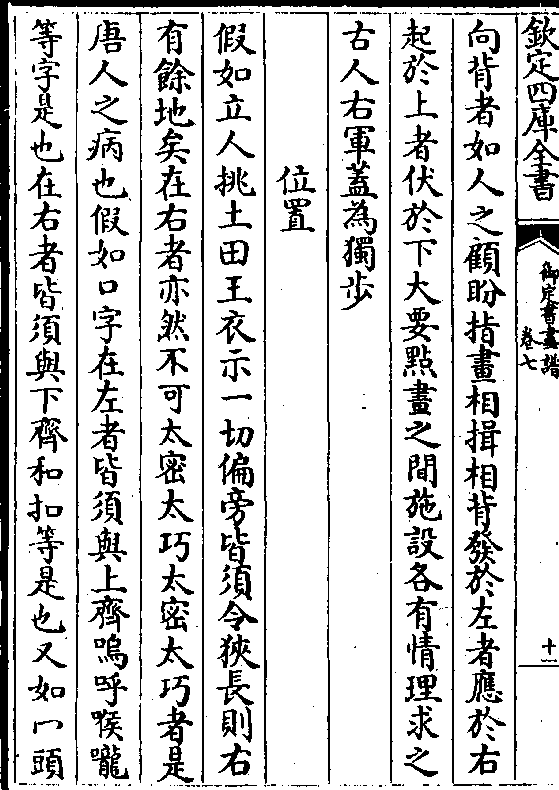 欽定四庫全書
御定書畫譜
卷七
十一
向背者如人之顧盼指畫相揖相背發於左者應於右
起於上者伏於下大要點畫之間施設各有情理求之
古人右軍蓋為獨步
位置
假如立人挑土田王衣示一切偏旁皆須令狹長則右
有餘地矣在右者亦然不可太密太巧太密太巧者是
唐人之病也假如口字在左者皆須與上齊嗚呼喉嚨
等字是也在右者皆須與下齊和扣等是也又如冖頭